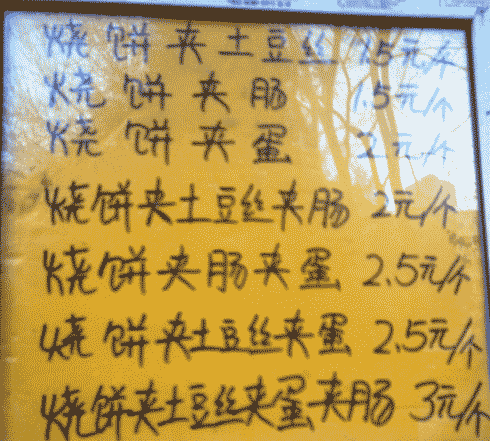 烧饼夹土豆丝 1.5元/个
烧饼夹肠 1.5元/个
烧饼夹蛋 2元/个
烧饼夹土豆丝夹肠 2元/个
烧饼夹肠夹蛋 2.5元/个
烧饼夹土豆丝夹蛋 2.5元/个
烧饼夹土豆丝夹蛋夹肠 3元/个